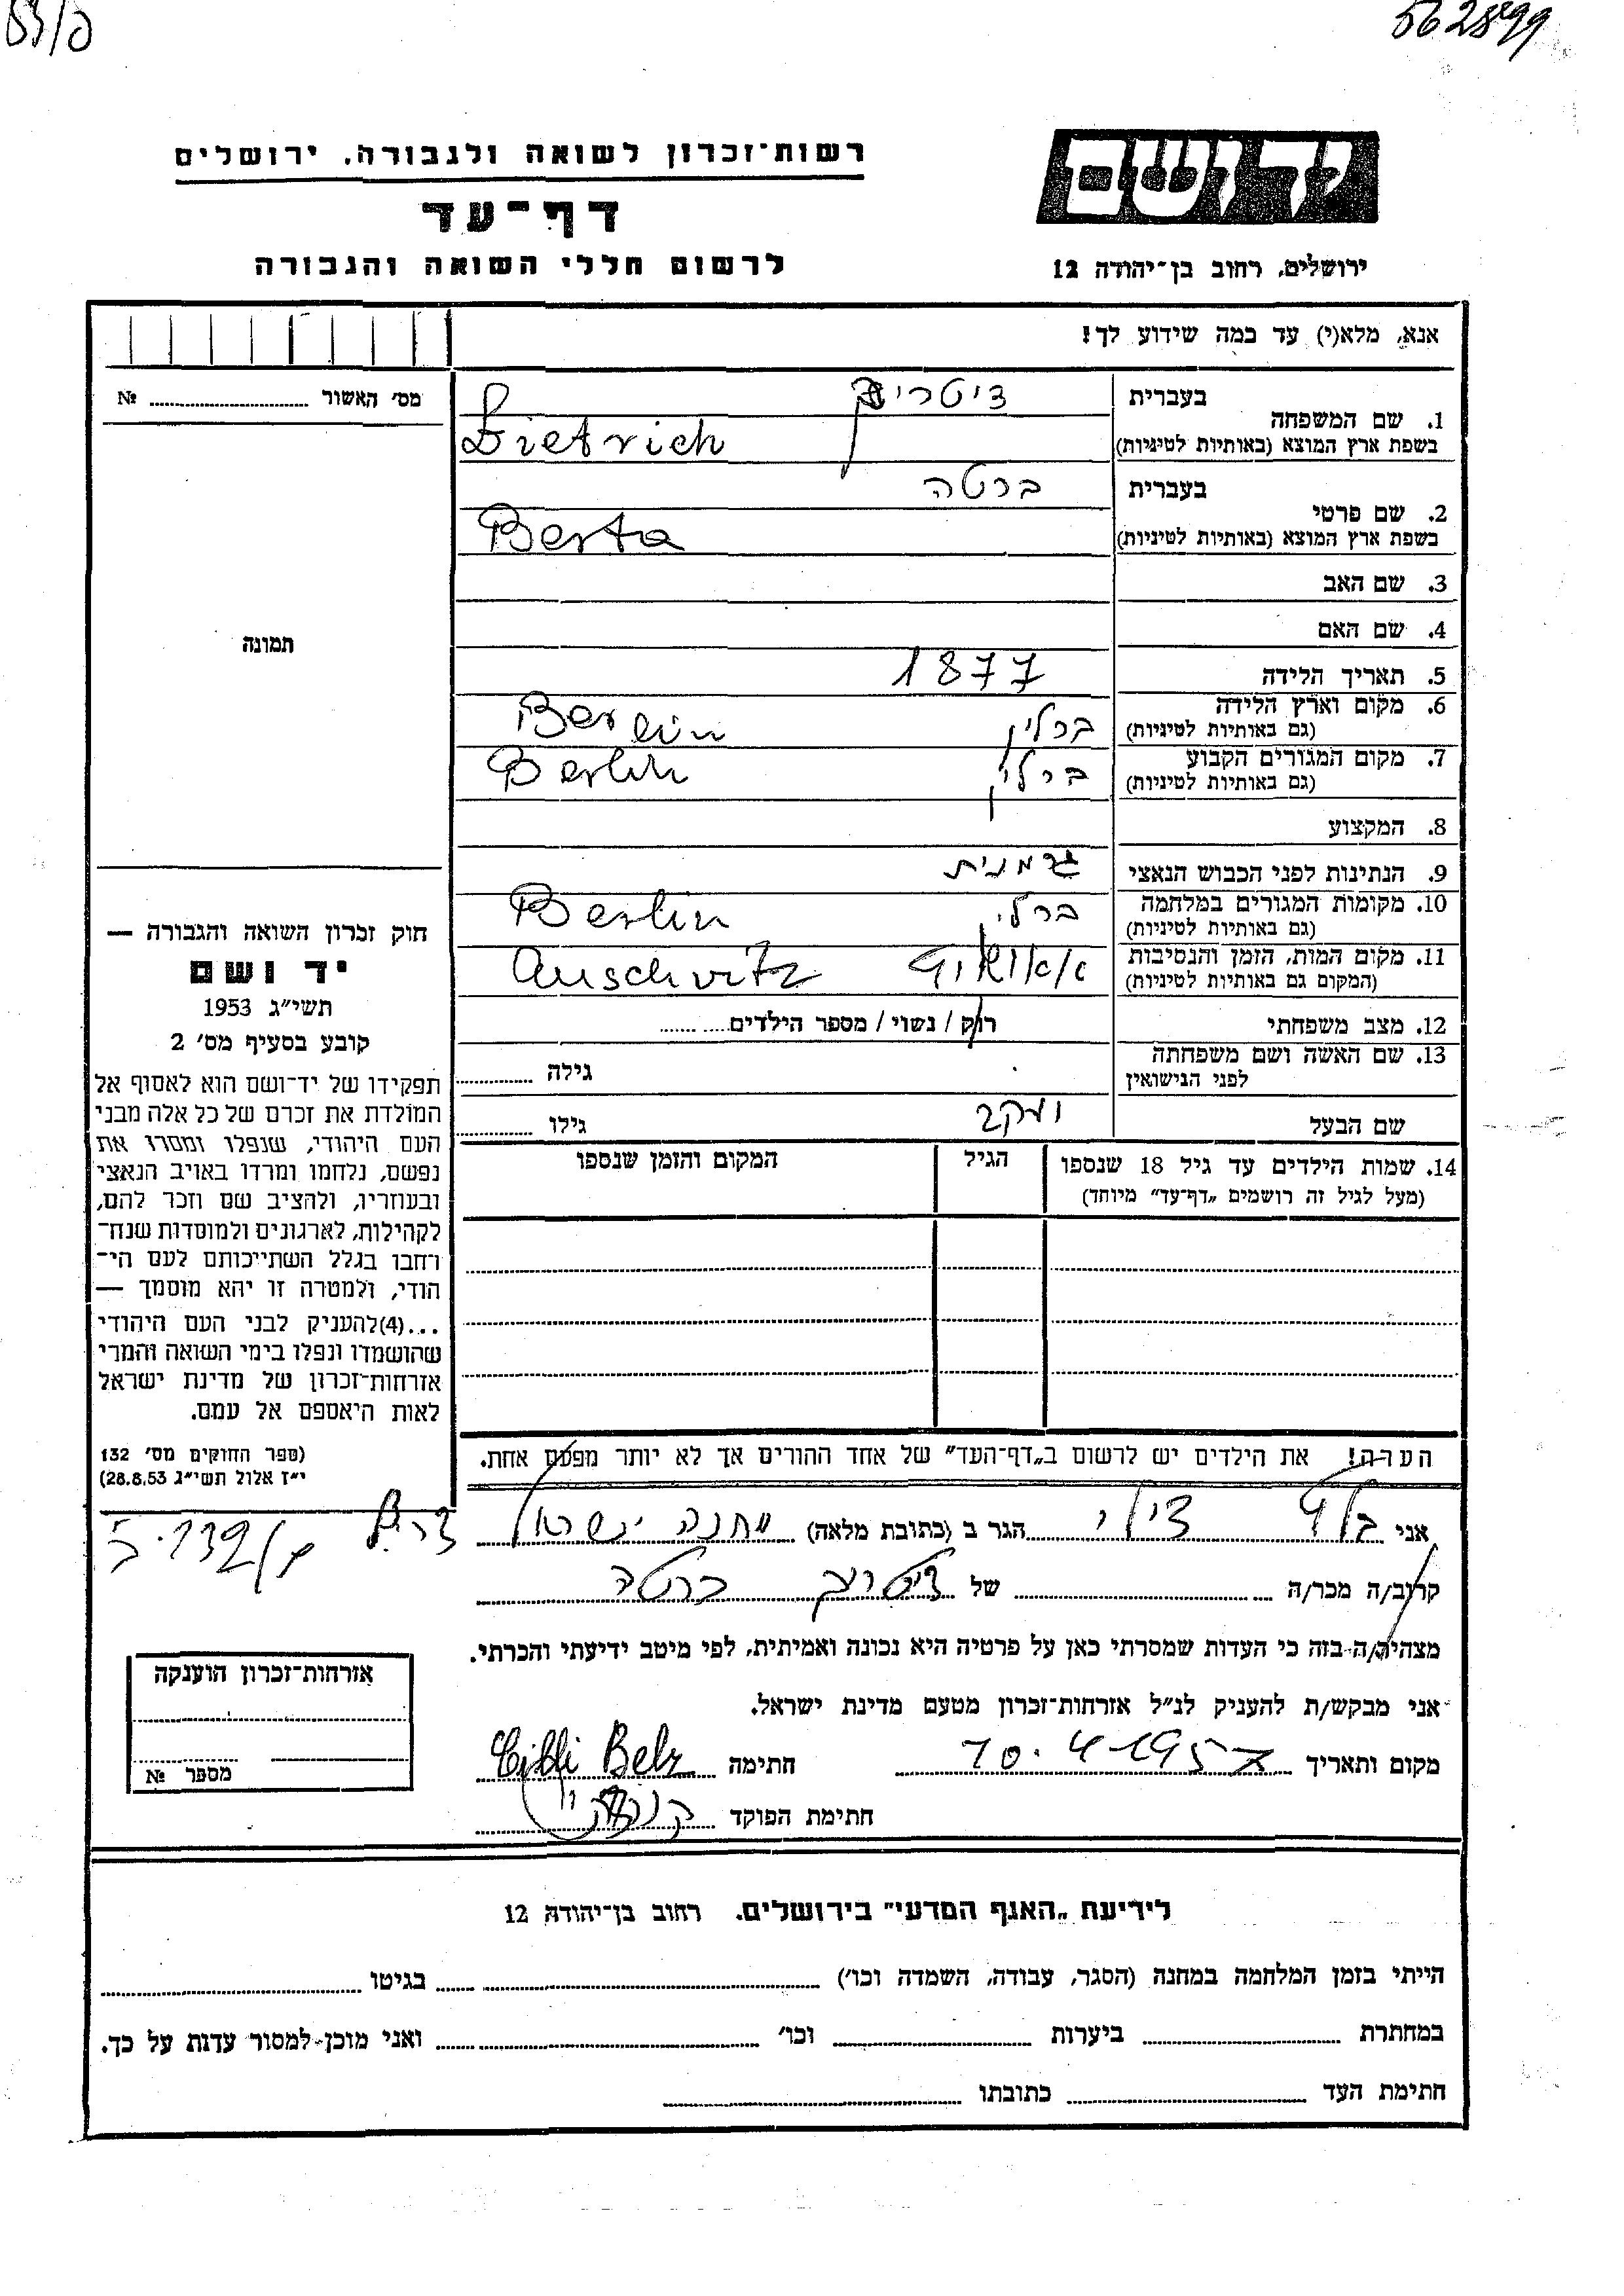 562899
רשות־זכרון לשואה ולגבורה, ירושלים
יד ושם
דף־עד
לרשום חללי השואה והגבורה
ירושלים, רחוב בן־יהודה 12
אנא, מלא(י) עד כמה שידוע לך!
מס׳ האשור № 
1. שם המשפחה בעברית
דיטריך
בשפת ארץ המוצא (באותיות לטיניות)
Dietrich
2. שם פרטי בעברית ברטה
בשפת ארץ המוצא (באותיות לטיניות)
Berta
3. שם האב
4. שם האם
תמונה
5. תאריך הלידה 1877
6. מקום וארץ הלידה
(גם באותיות לטיניות) ברלין Berlin
7. מקום המגורים הקבוע
(גם באותיות לטיניות) ברלין Berlin
8. המקצוע
9. הנתינות לפני הכבוש הנאצי גרמנית
10. מקומות המגורים במלחמה
(גם באותיות לטיניות) ברלין Berlin
11. מקום המות, הזמן והנסיבות
(המקום גם באותיות לטיניות) Auschvitz
12. מצב משפחתי רוק / נשוי / מספר הילדים
13. שם האשה ושם משפחתה
לפני הנישואין גילה
שם הבעל יעקב גילו
14. שמות הילדים עד גיל 18 שנספו הגיל המקום והזמן שנספו
(מעל לגיל זה רושמים „דף־עד״ מיוחד)
חוק זכרון השואה והגבורה —
יד ושם
תשי״ג 1953
קובע בסעיף מס׳ 2
תפקידו של יד־ושם הוא לאסוף אל
המולדת את זכרם של כל אלה מבני
העם היהודי, שנפלו ומסרו את
נפשם, נלחמו ומרדו באויב הנאצי
ובעוזריו, ולהציב שם וזכר להם,
לקהילות, לארגונים ולמוסדות שנח־
רחבו בגלל השתייכותם לעם הי־
הודי, ולמטרה זו יהא מוסמך —
...(4)להעניק לבני העם היהודי
שהושמדו ונפלו בימי השואה והמרי
אזרחות־זכרון של מדינת ישראל
לאות היאספם אל עמם.
(ספר החוקים מס׳ 132
י״ז אלול תשי״ג 28.8.53)
הערה! את הילדים יש לרשום ב„דף־העד״ של אחד ההורים אך לא יותר מפעם אחת.
אני בלץ צילי הגר ב (כתובת מלאה) מחנה ישראל
קרוב/ה מכר/ה של דיטריך ברטה
מצהיר/ה בזה כי העדות שמסרתי כאן על פרטיה היא נכונה ואמיתית, לפי מיטב ידיעתי והכרתי.
אני מבקש/ת להעניק לנ״ל אזרחות־זכרון מטעם מדינת ישראל.
מקום ותאריך 10.4.1957 חתימה Cilli Belz
חתימת הפוקד
אזרחות־זכרון הוענקה
מספר №
לידיעת „האגף המדעי״ בירושלים, רחוב בן־יהודה 12
הייתי בזמן המלחמה במחנה (הסגר, עבודה, השמדה וכו׳) בגיטו
במחתרת ביערות וכו׳ ואני מוכן למסור עדות על כך.
חתימת העד כתובתו